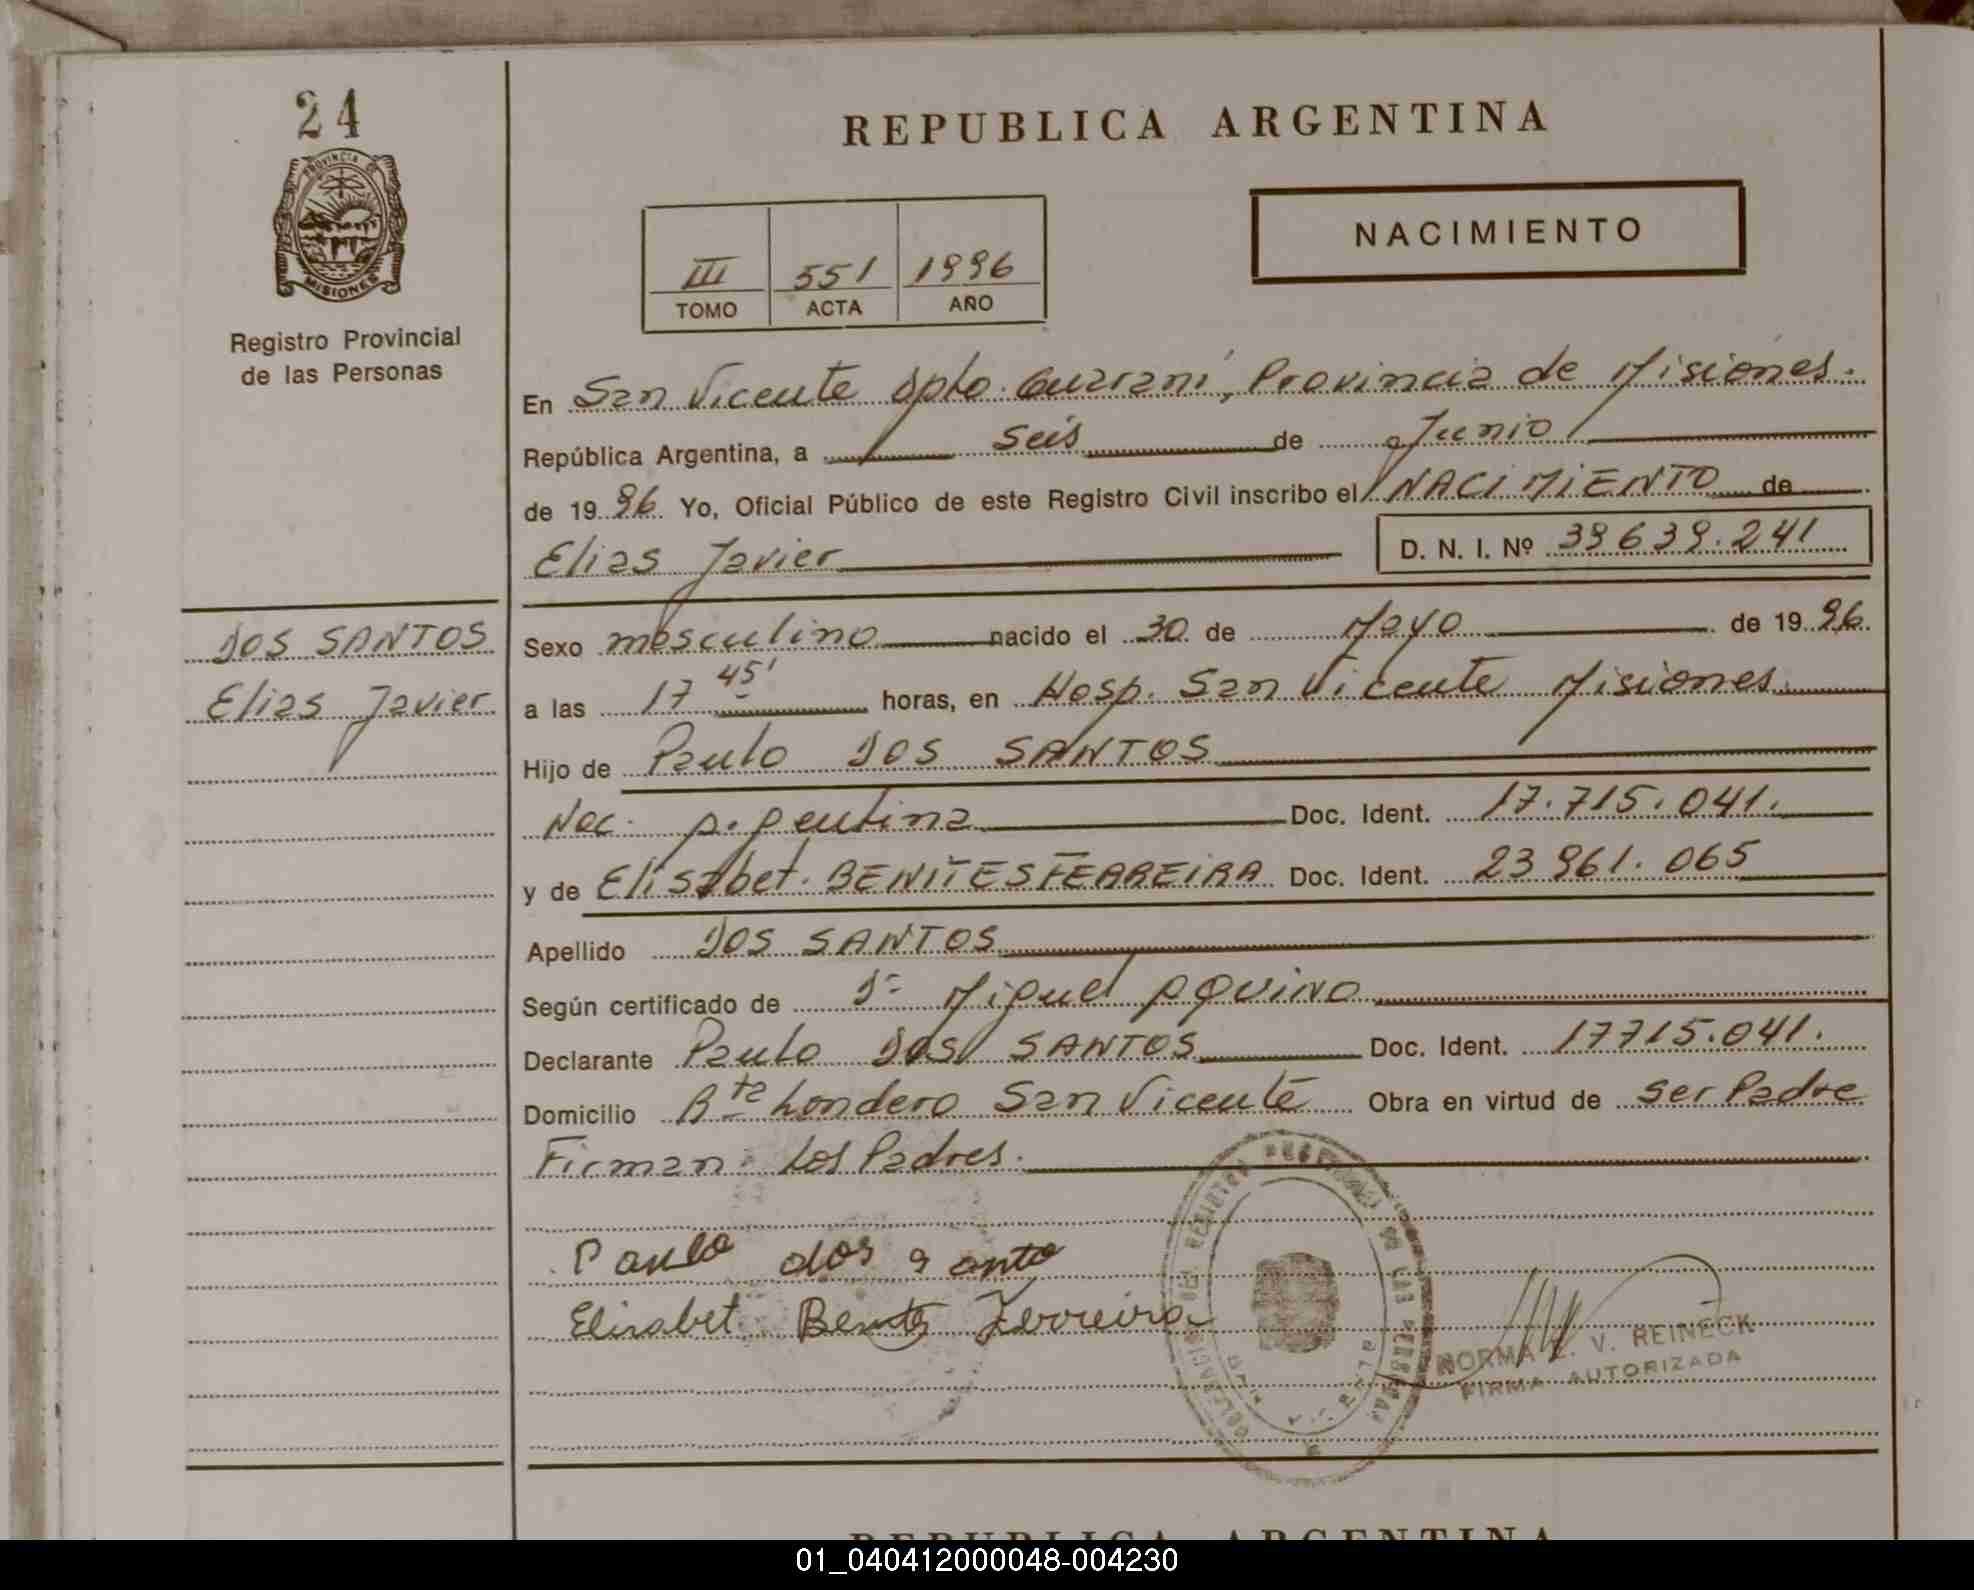 24
PROVINCIA DE
MISIONES
Registro Provincial
de las Personas
DOS SANTOS
Elias Javier
REPUBLICA ARGENTINA
NACIMIENTO
III 551 1996
TOMO ACTA AÑO
En San Vicente Dpto. Guaraní, Provincia de Misiones.
República Argentina, a Seis de Junio
de 1996 Yo, Oficial Público de este Registro Civil inscribo el NACIMIENTO de
Elias Javier D. N. I. Nº 39639.241
Sexo masculino nacido el 30 de Mayo de 1996
a las 17 45' horas, en Hosp. San Vicente Misiones.
Hijo de Paulo DOS SANTOS
Nac. Argentina Doc. Ident. 17.715.041.
y de Elisabet. BENITES FERREIRA Doc. Ident. 23961.065
Apellido DOS SANTOS
Según certificado de Dr Miguel AQUINO
Declarante Paulo DOS SANTOS Doc. Ident. 17715.041.
Domicilio Bta Londero San Vicente Obra en virtud de ser Padre
Firman los Padres.
Paulo dos santo
Elisabet Benites Ferreira
NORMA V. REINECK
FIRMA AUTORIZADA
REPUBLICA ARGENTINA
01_040412000048-004230